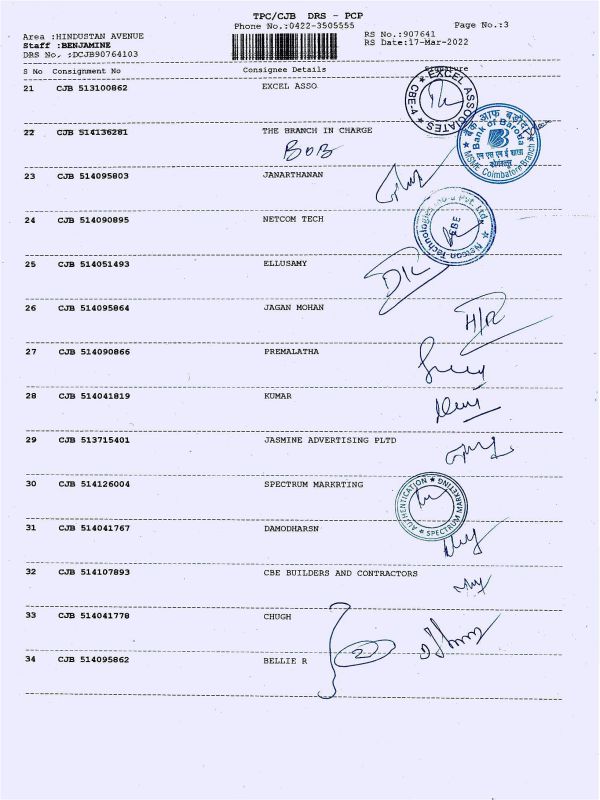 TPC/CJB DRS - PCP
Phone No.:0422-3505555
Page No.:3
Area :HINDUSTAN AVENUE
RS No.:907641
Staff :BENJAMINE
RS Date:17-Mar-2022
DRS No. :DCJB90764103
S No Consignment No Consignee Details Signature
21 CJB 513100862 EXCEL ASSO
EXCEL ASSOCIATES
CBE-4
22 CJB 514136281 THE BRANCH IN CHARGE
BOB
बैंक ऑफ बड़ौदा
Bank of Baroda
एम एस एम ई शाखा
कोयंबत्तूर
MSME Coimbatore Branch
23 CJB 514095803 JANARTHANAN
24 CJB 514090895 NETCOM TECH
Netcon Technologies India Pvt. Ltd.
CBE
25 CJB 514051493 ELLUSAMY
26 CJB 514095864 JAGAN MOHAN
H/R
27 CJB 514090866 PREMALATHA
28 CJB 514041819 KUMAR
29 CJB 513715401 JASMINE ADVERTISING PLTD
30 CJB 514126004 SPECTRUM MARKRTING
AUTHENTICATION
SPECTRUM MARKETING
31 CJB 514041767 DAMODHARSN
32 CJB 514107893 CBE BUILDERS AND CONTRACTORS
33 CJB 514041778 CHUGH
2
34 CJB 514095862 BELLIE R